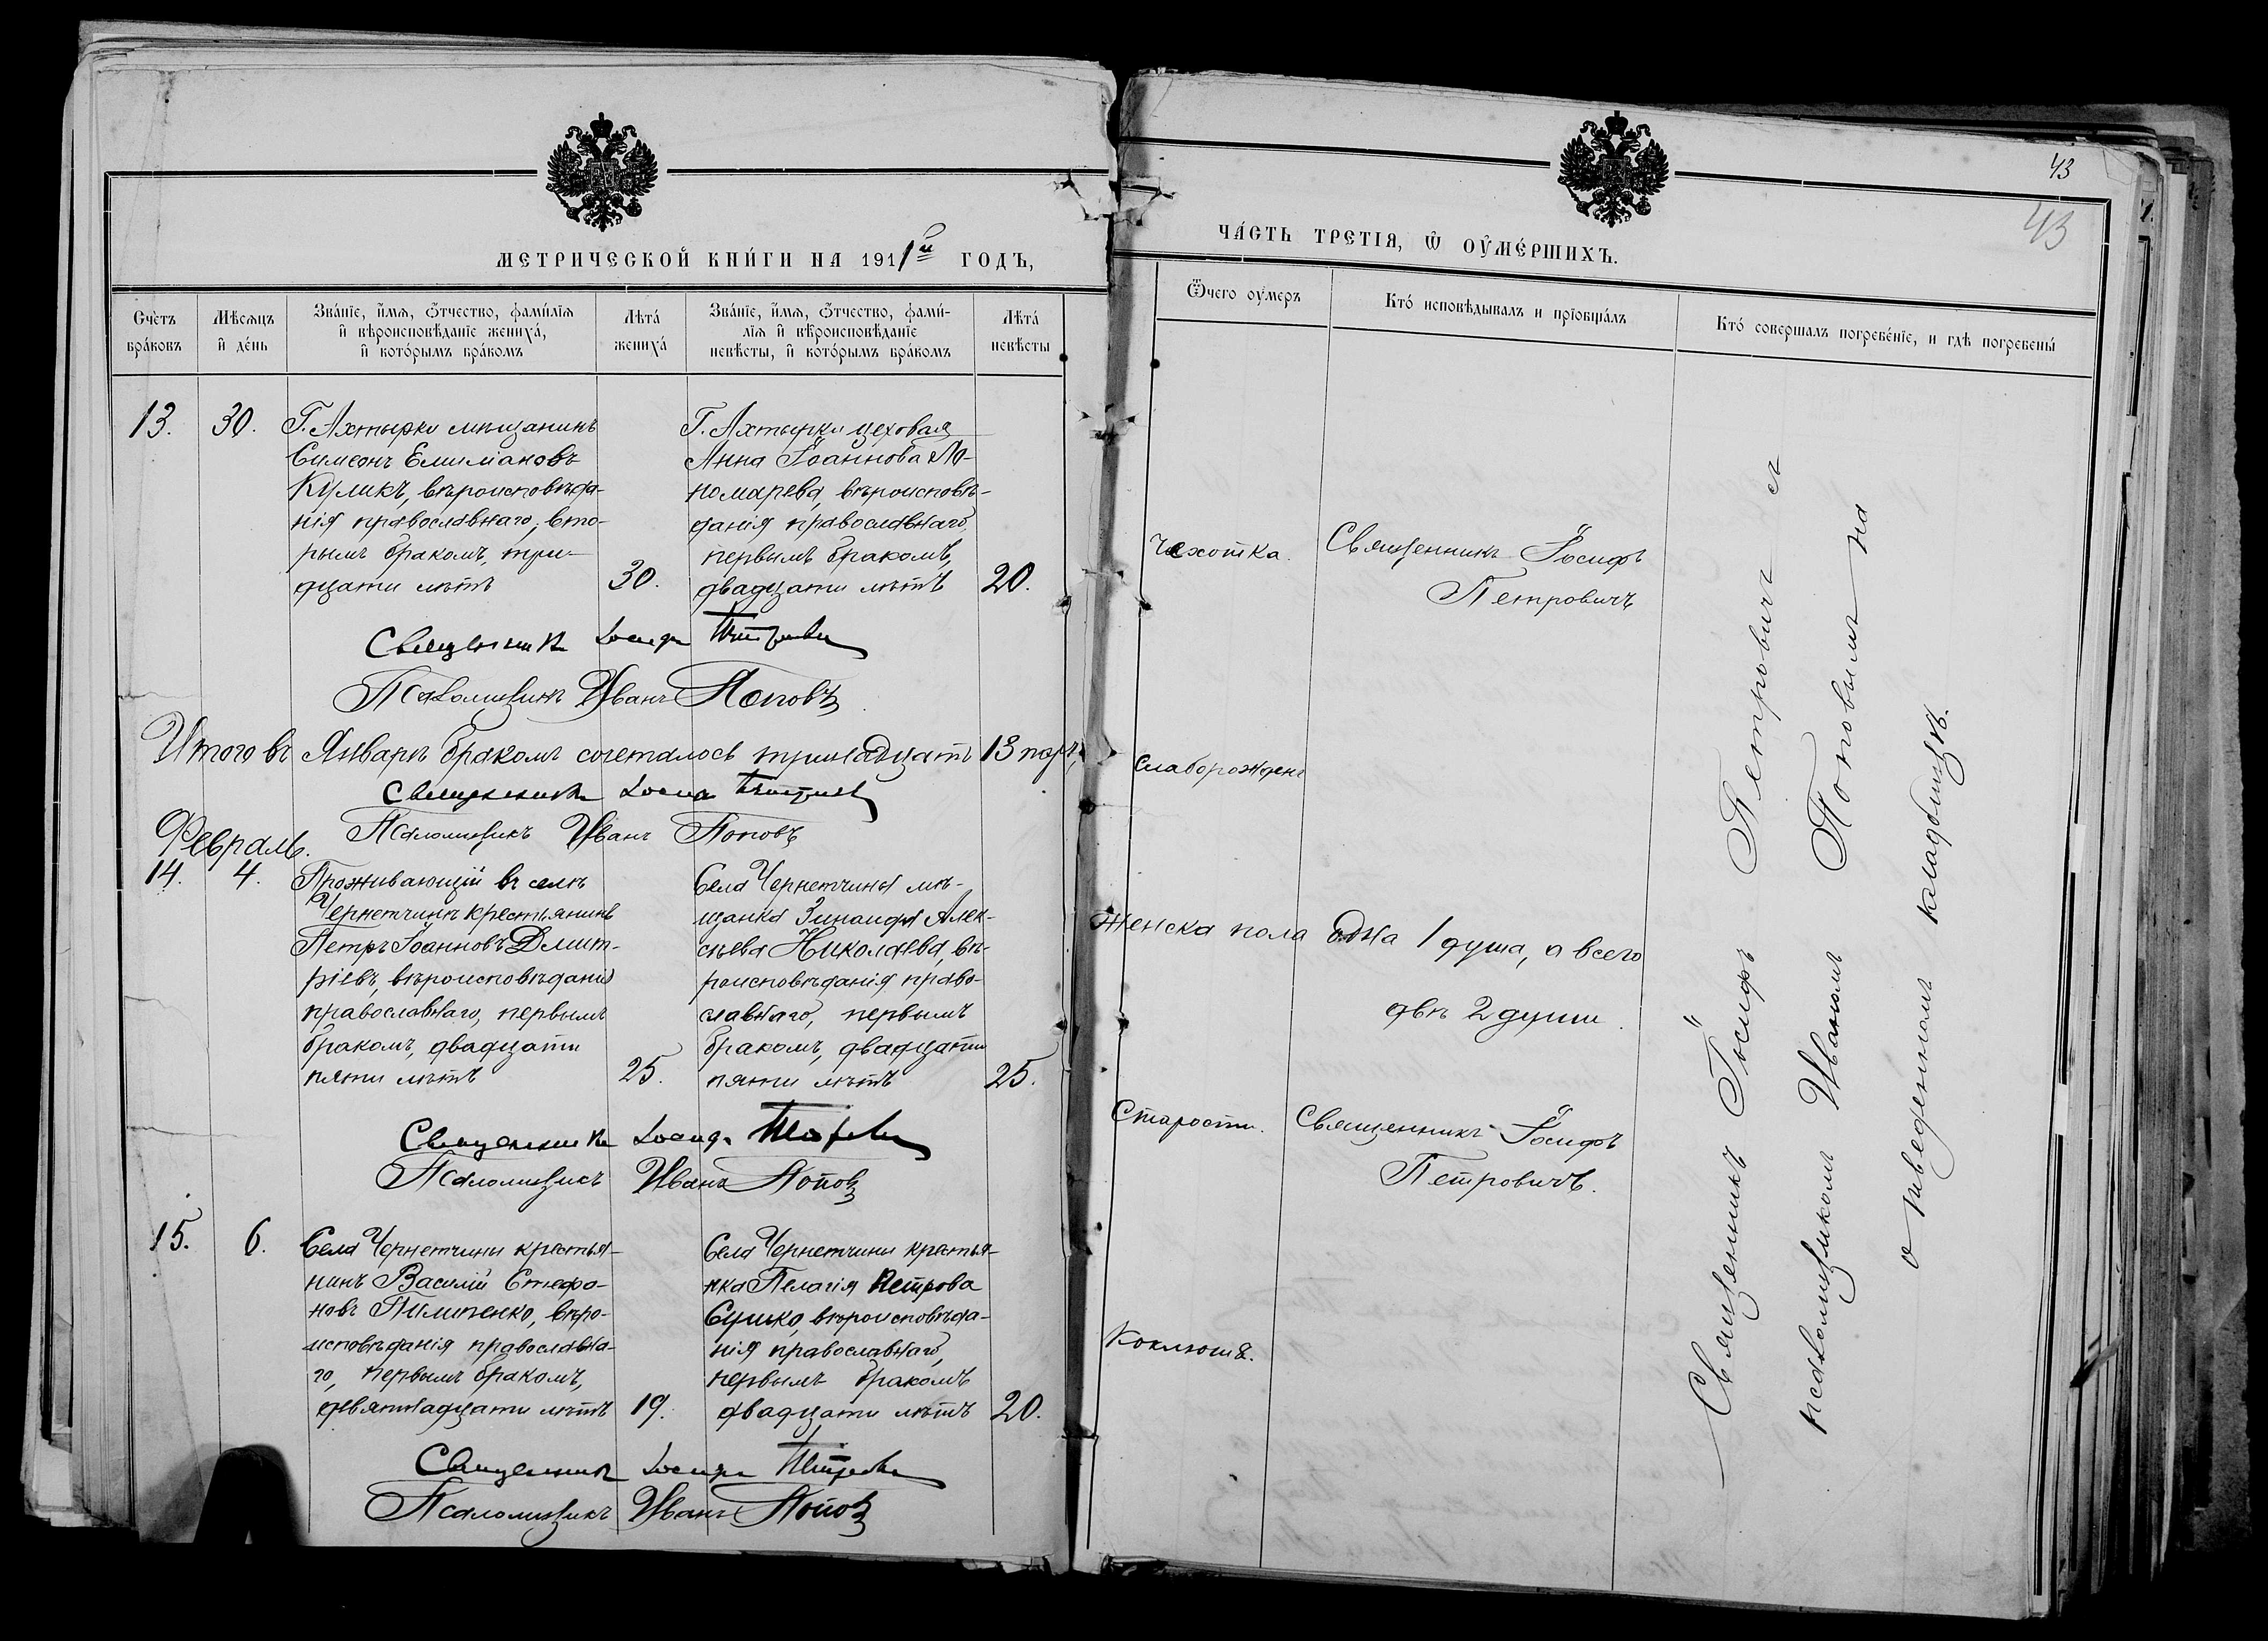 МЕТРИЧЕСКОЙ КНИГИ НА 1911й ГОДЪ,
Счетъ браковъ
Мѣсяцъ и день
Званіе, имя, отчество, фамилія и вѣроисповѣданіе жениха, и которымъ бракомъ
Лѣта жениха
Званіе, имя, отчество, фамилія и вѣроисповѣданіе невѣсты, и которымъ бракомъ
Лѣта невѣсты
13. 30.
Г. Ахтырки мѣщанинъ
Симеонъ Емиліановъ
Куликъ, вѣроисповѣда-
нія православнаго, вто-
рымъ бракомъ, три-
дцати лѣтъ
30.
Г. Ахтырки цеховая
Анна Іоаннова По-
номарева, вѣроисповѣ-
данія православнаго
первымъ бракомъ,
двадцати лѣтъ
20.
Священникъ Іосифъ Петровичъ
Псаломщикъ Иванъ Поповъ
Итого въ Январѣ бракомъ сочеталось тринадцать 13 паръ,
Священникъ Іосифъ Петровичъ
Псаломщикъ Иванъ Поповъ
Февраль.
14. 4.
Проживающій въ селѣ
Чернетчинѣ крестьянинъ
Петръ Іоанновъ Дмит-
ріевъ, вѣроисповѣданія
православнаго, первымъ
бракомъ, двадцати
пяти лѣтъ
25.
Села Чернетчины мѣ-
щанка Зинаида Алек-
сѣева Николаева, вѣ-
роисповѣданія право-
славнаго, первымъ
бракомъ, двадцати
пяти лѣтъ
25.
Священникъ Іосифъ Петровичъ
Псаломщикъ Иванъ Поповъ
15. 6.
Села Чернетчины крестья-
нинъ Василій Стефа-
новъ Пилипенко, вѣро-
исповѣданія православна-
го, первымъ бракомъ,
девятнадцати лѣтъ
19.
Села Чернетчины крестья-
нка Пелагія Петрова
Сушко, вѣроисповѣда-
нія православнаго,
первымъ бракомъ
двадцати лѣтъ
20.
Священникъ Іосифъ Петровичъ
Псаломщикъ Иванъ Поповъ
43
43
ЧАСТЬ ТРЕТІЯ, Ѡ ОУМЕРШИХЪ.
Ѿчего оумеръ
Кто исповѣдывалъ и пріобщалъ
Кто совершалъ погребеніе, и гдѣ погребены
Чахотка.
Священникъ Іосифъ
Петровичъ
Слаборожден
Женска пола одна 1 душа, а всего
двѣ 2 души.
Старости.
Священникъ Іосифъ
Петровичъ.
Коклюша.
Священникъ Іосифъ Петровичъ съ
псаломщикомъ Иваномъ Поповымъ на
приведенномъ кладбищѣ.